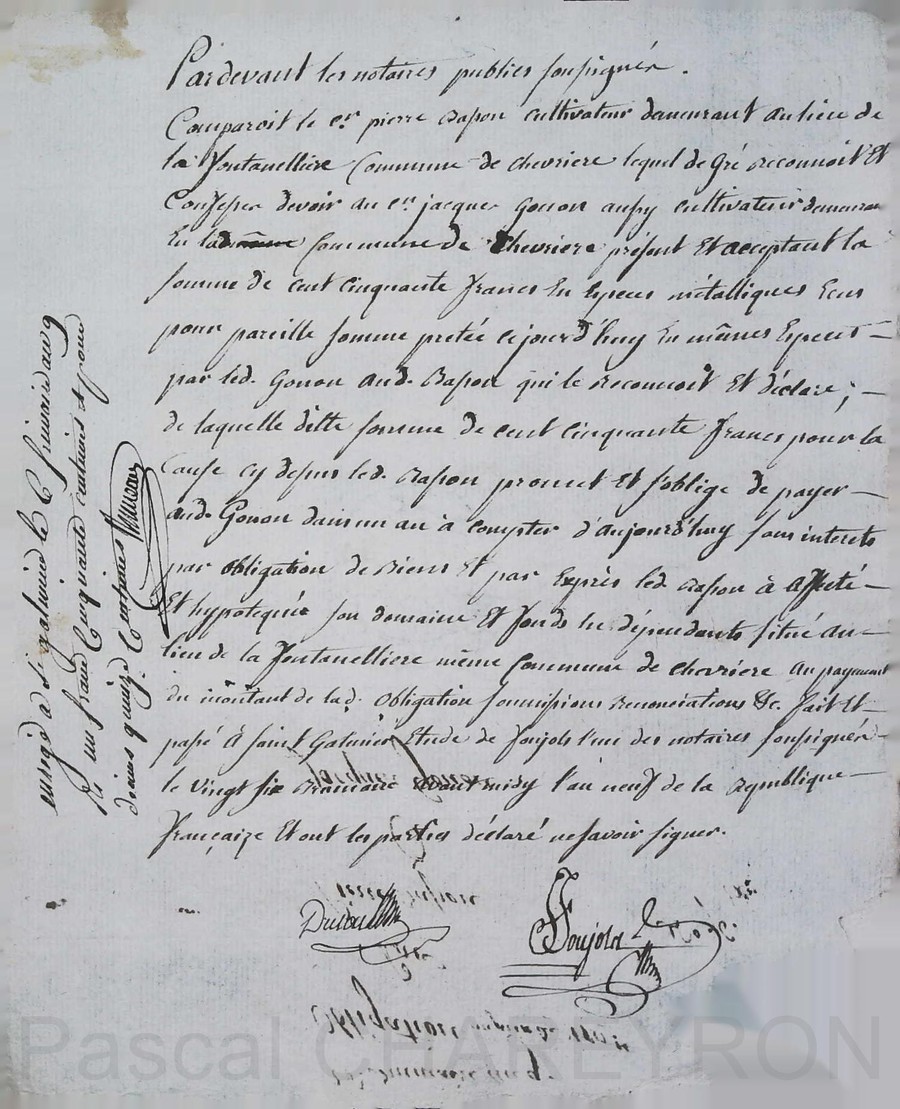 Pardevant les notaires publics soussignés.
Comparoit le c.en pierre Rapon cultivateur demeurant au lieu de
la fontanelliere Commune de chevriere lequel de gré reconnoit Et
Confesse devoir au c.en jacques Gonon aussy cultivateur demeurant
En lad. Commune de Chevriere présent Et acceptant la
somme de cent cinquante francs En Especes métalliques
pour pareille somme pretée cejourd'huy En mêmes Especes
par led. Gonon aud. Rapon qui le reconnoit Et déclare ;
de laquelle ditte somme de cent cinquante francs pour la
Cause cy dessus led. Rapon promet Et s'oblige de payer
aud. Gonon dans un an à compter d'aujourd'huy sans interets
par obligation de Biens Et par Exprès led. Rapon à affecté
Et hypotequée son domaine Et fonds En dépendants situé au
lieu de la fontanelliere même Commune de chevriere au payement
du montant de lad. obligation soumissions renonciations &c. fait Et
passé à saint Galmier Etude de Soujols l'un des notaires soussignés
le vingt six Brumaire avant midy l'an neuf de la republique
françaize Et ont les parties déclaré ne savoir signer.
Soujols
obligation
enregé à St galmier le 6 frimaire an 9
R. un franc Cinquante centimes & pour
quinze Centimes
Pascal CHAREYRON